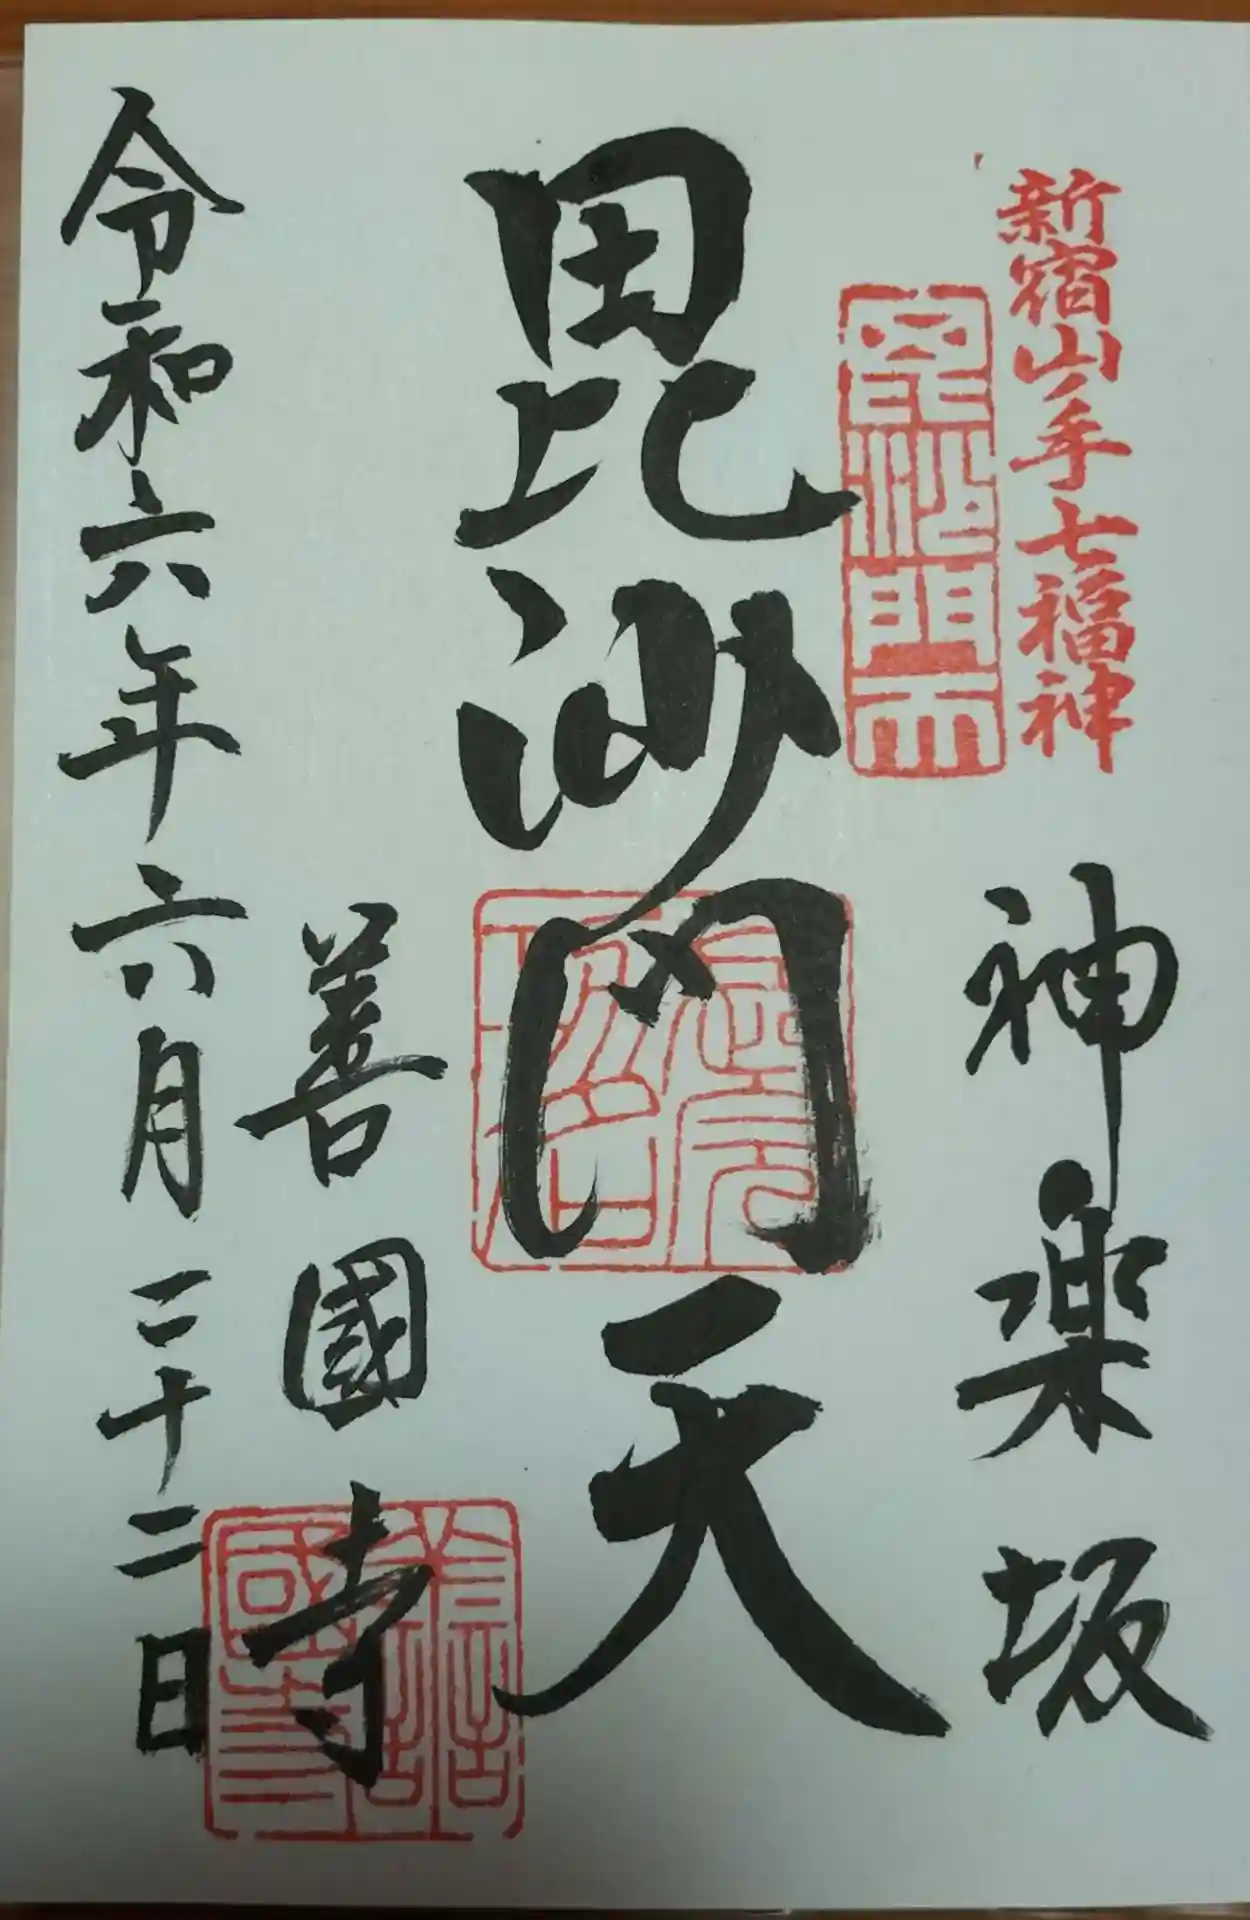 新宿山ノ手七福神
神楽坂
毘沙門天
毘沙門天
善國寺
善國寺
令和六年六月二十二日